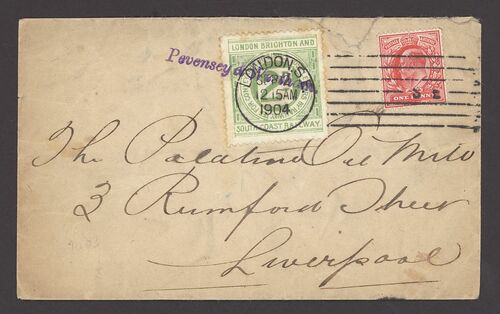 Pevensey &
LONDON BRIGHTON AND
SOUTH COAST RAILWAY
LONDON. S.E.
12 15AM
1904
ONE PENNY
S.E
The Palatine Oil Mills
3 Rumford Street
Liverpool